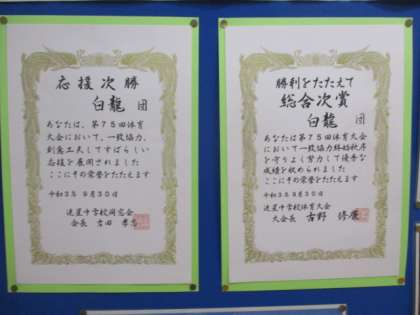 応援次勝
白龍 団
あなたは、第75回体育
大会において、一致協力、
創意工夫してすばらしい
応援を展開されました
ここにその栄誉をたたえます
令和3年 9月30日
中学校同窓会
会長 吉田
勝利をたたえて
総合次賞
白龍 団
あなたは第75回体育大会
において一致協力終始秩序
を守りよく努力して優秀な
成績を収められました
ここにその栄誉をたたえます
令和3年9月30日
中学校体育大会
大会長 吉野